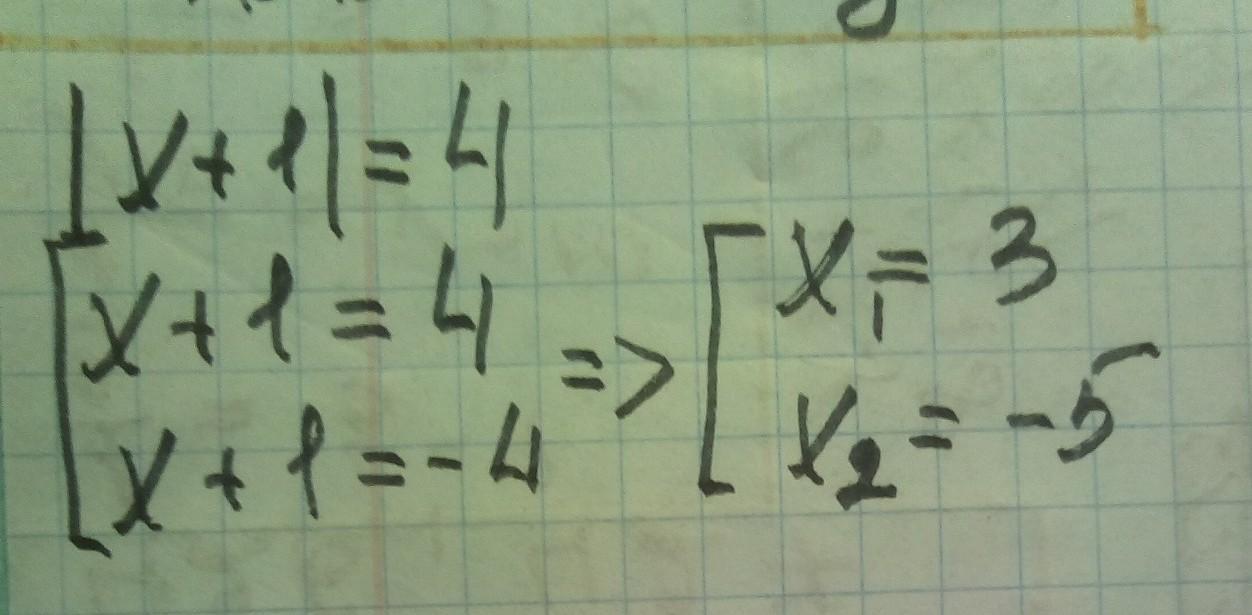 |x+1|=4
[x+1=4 => [x₁=3
[x+1=-4 [x₂=-5